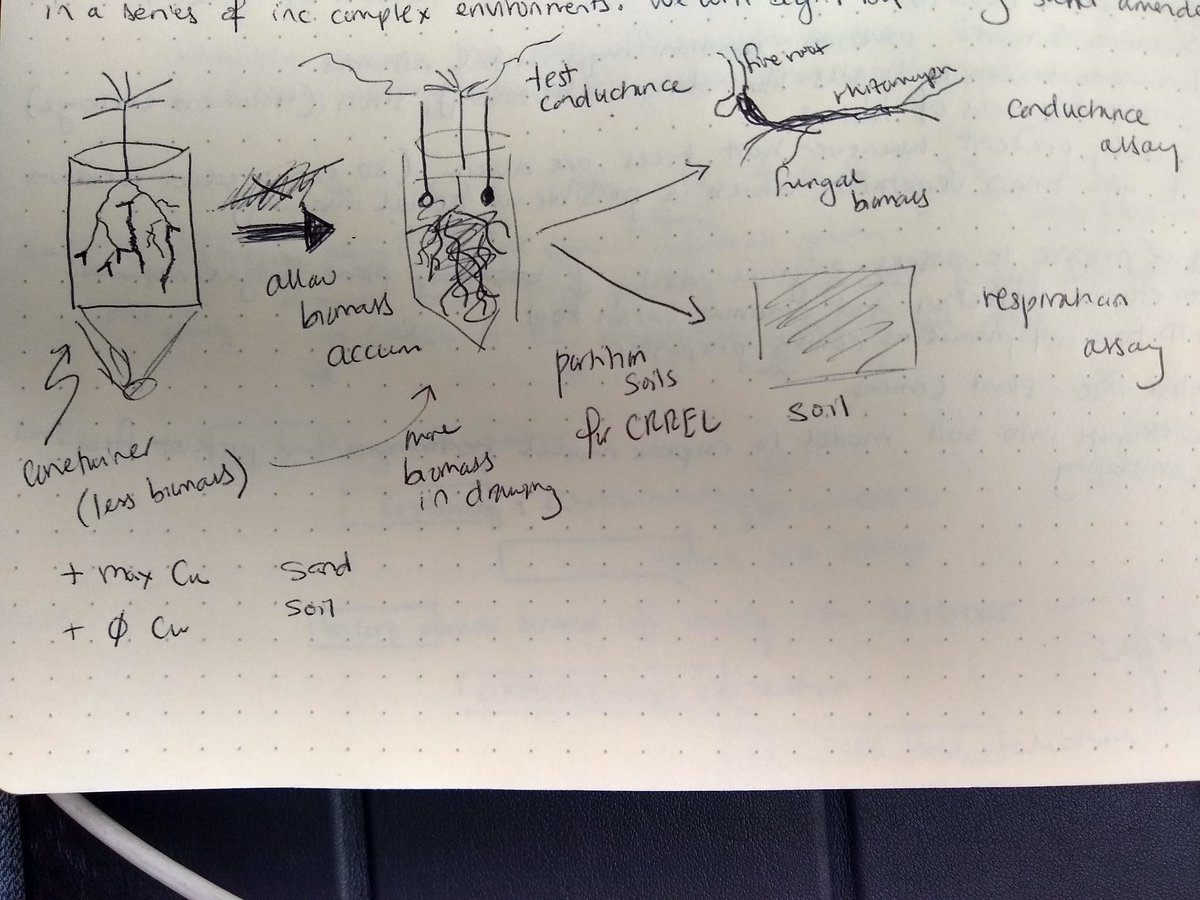 in a series of inc. complex environments. We will
test
conductance
fine root
rhizomorph
conductance
assay
fungal
biomass
allow
biomass
accum
respiration
assay
partition
soils
for CRREL
soil
container
(less biomass)
more
biomass
in drawing
+ max Cu
+ ϕ Cu
sand
soil